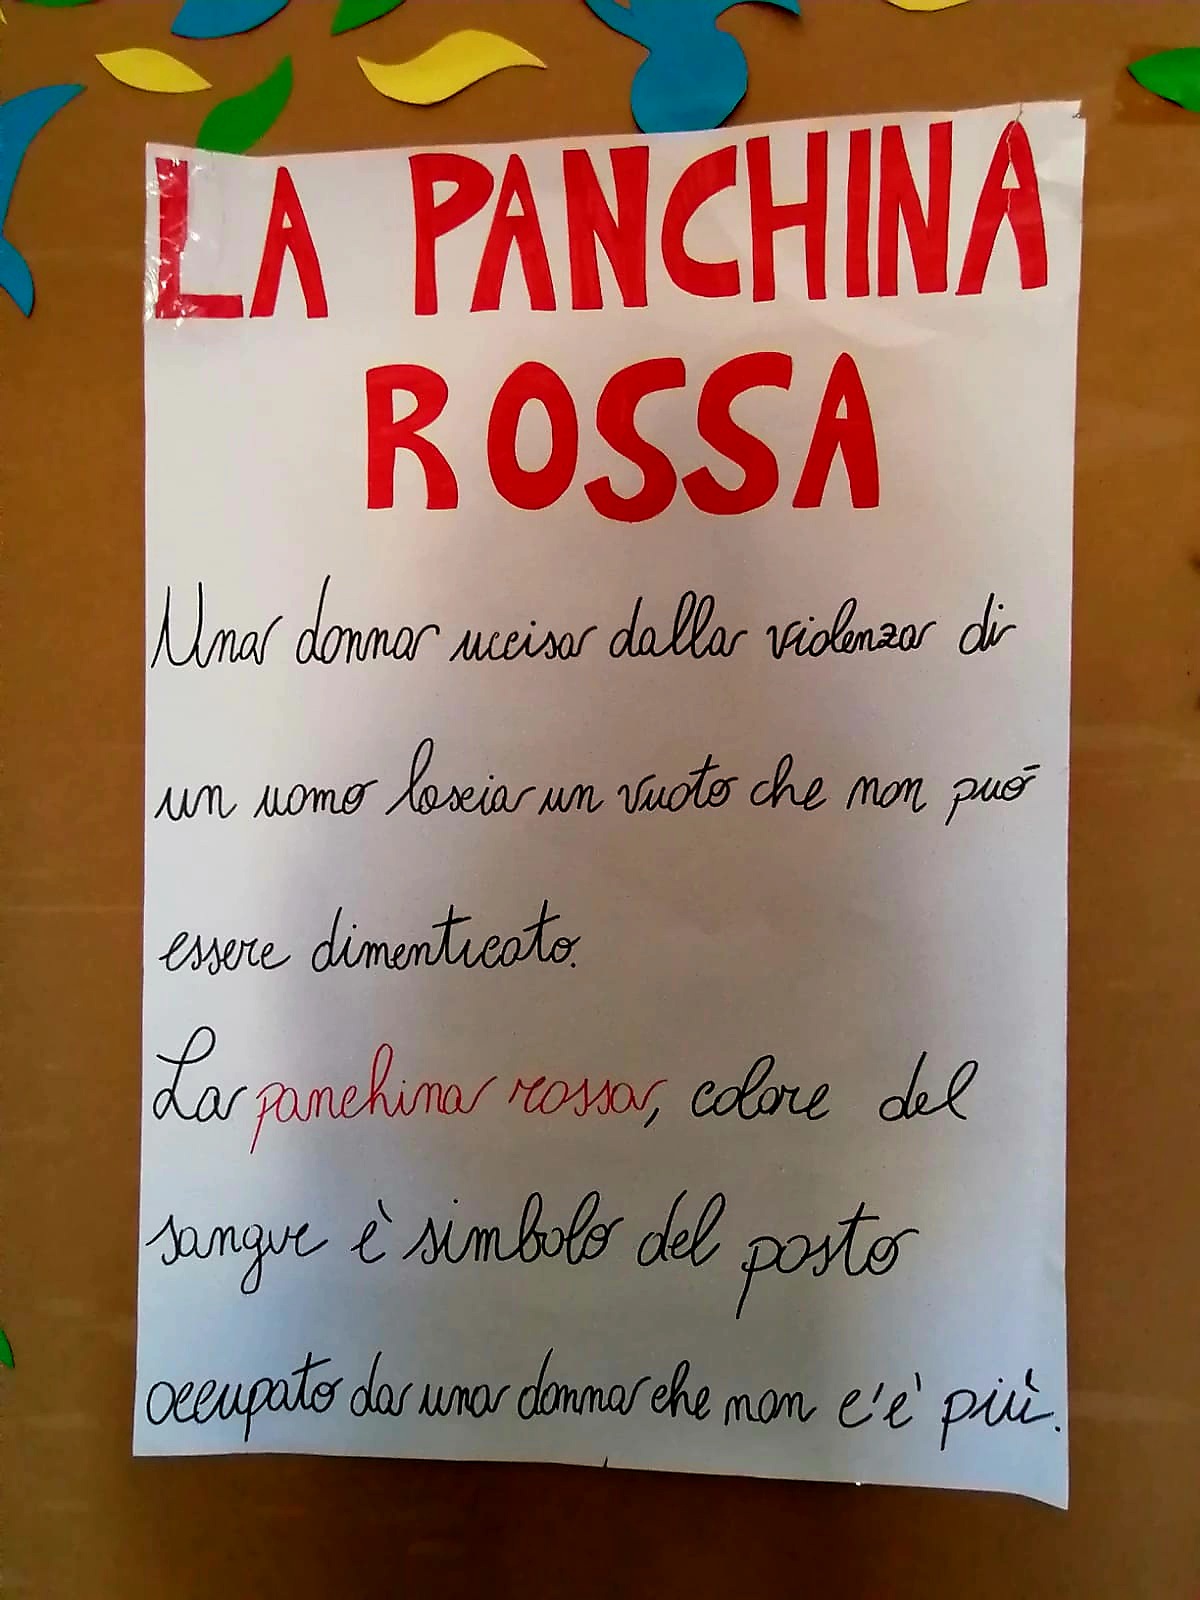 LA PANCHINA
ROSSA
Una donna uccisa dalla violenza di
un uomo lascia un vuoto che non può
essere dimenticato.
La panchina rossa, colore del
sangue è simbolo del posto
occupato da una donna che non c'è più.